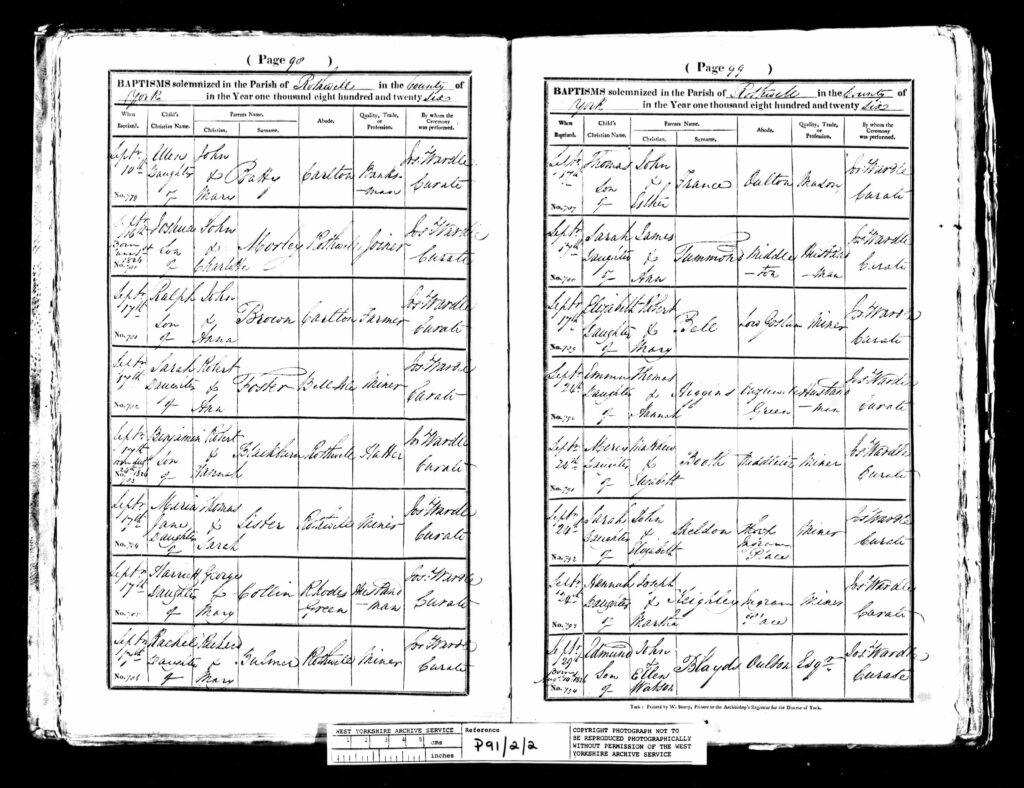 ( Page 98 )
BAPTISMS solemnized in the Parish of Rothwell in the County of
York in the Year one thousand eight hundred and twenty six
When Baptized. Child's Christian Name. Parents Name. Christian. Surname. Abode. Quality, Trade, or Profession. By whom the Ceremony was performed.
Septr Ellen John Josh Wardle
10th Daughter & Batty Carlton Banks-
of Mary -man Curate
No.
Septr Joshua John Josh Wardle
Son & Morley Rothwell Joiner
Born of Charlotte Curate
No.
Septr Ralph John Josh Wardle
17th Son & Brown Carlton Farmer
of Anna Curate
No.
Septr Sarah Robert Josh Wardle
17th Daughter & Foster Bell Isle Miner
of Ann Curate
No.
Septr Benjamin Robert Josh Wardle
17th Son & Blackburn Rothwell Hatter
of Hannah Curate
No.
Septr Maria Thomas Josh Wardle
17th Jane & Lister Rothwell Miner
Daughter Curate
No. 784 of Sarah
Septr Harriett George Josh Wardle
17th Daughter & Collin Rhodes Husband
of Mary Green -man Curate
No.
Septr Rachel Richard Josh Wardle
17th Daughter & Bulmer Rothwell Miner
of Mary Curate
No. 786
( Page 99 )
BAPTISMS solemnized in the Parish of Rothwell in the County of
York in the Year one thousand eight hundred and twenty six
When Baptized. Child's Christian Name. Parents Name. Christian. Surname. Abode. Quality, Trade, or Profession. By whom the Ceremony was performed.
Septr Thomas John Josh Wardle
17th Son & France Oulton Mason
of Esther Curate
No. 787
Septr Sarah James Josh Wardle
17th Daughter & Tummons Middle Husband
of Ann -ton -man Curate
No.
Septr Elizabeth Robert Josh Wardle
17th Daughter & Bell Miner
of Mary Curate
No. 789
Septr Emma Thomas Josh Wardle
24th Daughter & Higgins Husband
of Hannah Green -man Curate
No. 790
Septr Matthew Josh Wardle
24th Daughter & Booth Middleton Miner
of Elizabeth Curate
No. 791
Septr Sarah John Josh Wardle
24th Daughter & Sheldon Thorp Miner
of Elizabeth Ingram Place Curate
No. 792
Septr Hannah Joseph Josh Wardle
24th Daughter & Keighley Ingram Miner
of Martha Place Curate
No. 793
Septr Edmund John Josh Wardle
29th & Blayds Oulton Esqr
Born Son Ellen Curate
of Watson
No. 794
York: Printed by W. Storry, Printer to the Archbishop's Registrar for the Diocese of York.
WEST YORKSHIRE ARCHIVE SERVICE
1 2 3 4 5 cms
inches
Reference
P91/2/2
COPYRIGHT PHOTOGRAPH NOT TO
BE REPRODUCED PHOTOGRAPHICALLY
WITHOUT PERMISSION OF THE WEST
YORKSHIRE ARCHIVE SERVICE